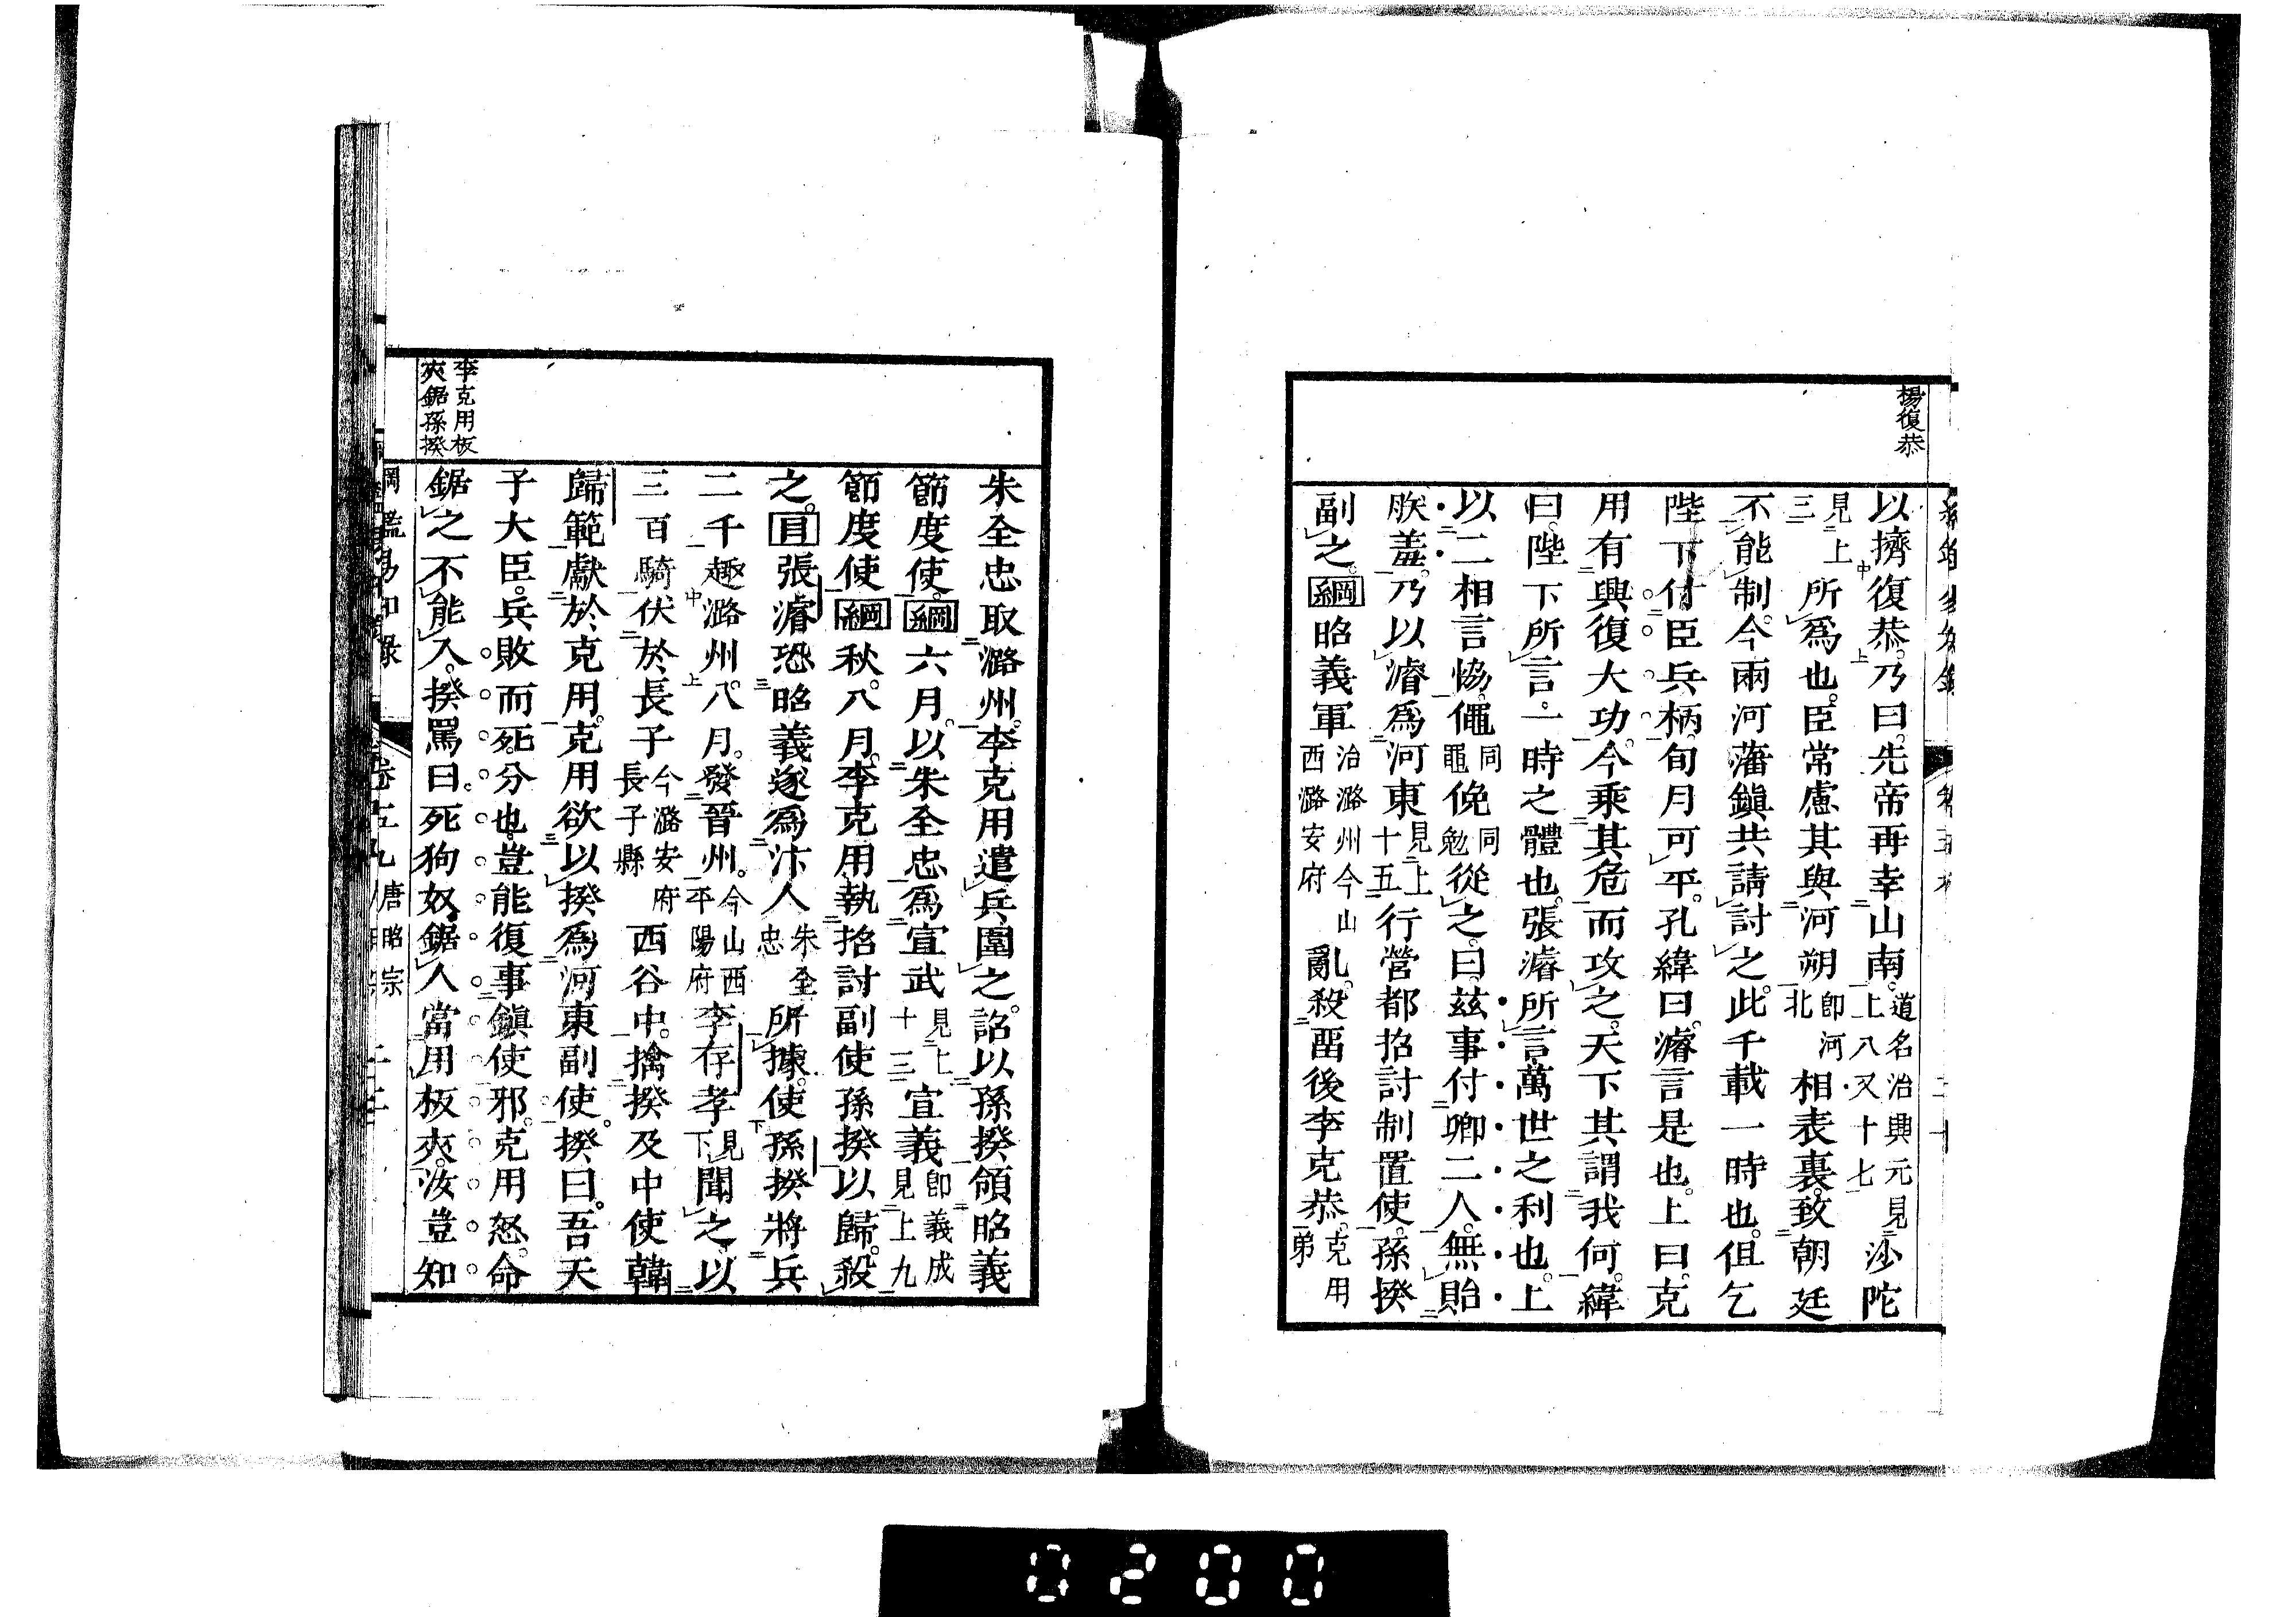 楊復恭
以擠復恭。乃曰。先帝再幸山南。道名治興元見上八又十七沙陀
見上三所爲也。臣常慮其與河朔卽河北相表裏。致朝廷
不能制。今兩河藩鎭共請討之。此千載一時也。但乞
陛下付臣兵柄。旬月可平。孔緯曰。濬言是也。上曰。克
用有興復大功。今乘其危而攻之。天下其謂我何。緯
曰。陛下所言。一時之體也。張濬所言萬世之利也。上
以二相言恊。僶同黽俛同勉從之。曰。玆事付卿二人。無貽
朕羞。乃以濬爲河東見上十五行營都招討制置使。孫揆
副之。綱昭義軍治潞州今山西潞安府亂。殺畱後李克恭。克用弟
朱全忠取潞州。李克用遣兵圍之。詔以孫揆領昭義
節度使。綱六月。以朱全忠爲宣武見上十三宣義卽義成見上九
節度使綱秋。八月。李克用執招討副使孫揆以歸。殺
之。目張濬恐昭義遂爲汴人朱全忠所據。使孫揆將兵
二千趣潞州。八月。發晉州。今山西平陽府李存孝見下聞之。以
三百騎伏於長子今潞安府長子縣西谷中。擒揆及中使韓
歸範獻於克用。克用欲以揆爲河東副使。揆曰。吾天
子大臣。兵敗而死。分也。豈能復事鎭使邪。克用怒。命
鋸之不能入。揆罵曰。死狗奴。鋸人當用板夾。汝豈知
李克用板
夾鋸孫揆
綱鑑易知錄
卷五九 唐昭宗 二三
0200